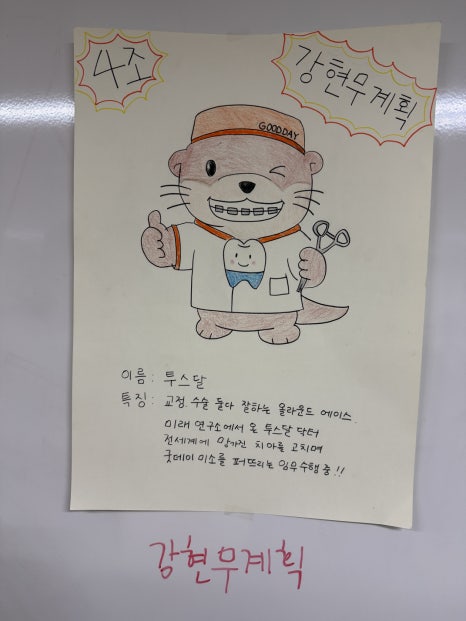 4조
강현무계획
GOODDAY
이름 : 투스달
특징 : 교정. 수술 둘다 잘하는 올라운드 에이스.
미래 연구소에서 온 투스달 닥터
전세계에 망가진 치아를 고치며
굿데이 미소를 퍼뜨리는 임무수행 중!!
강현무계획